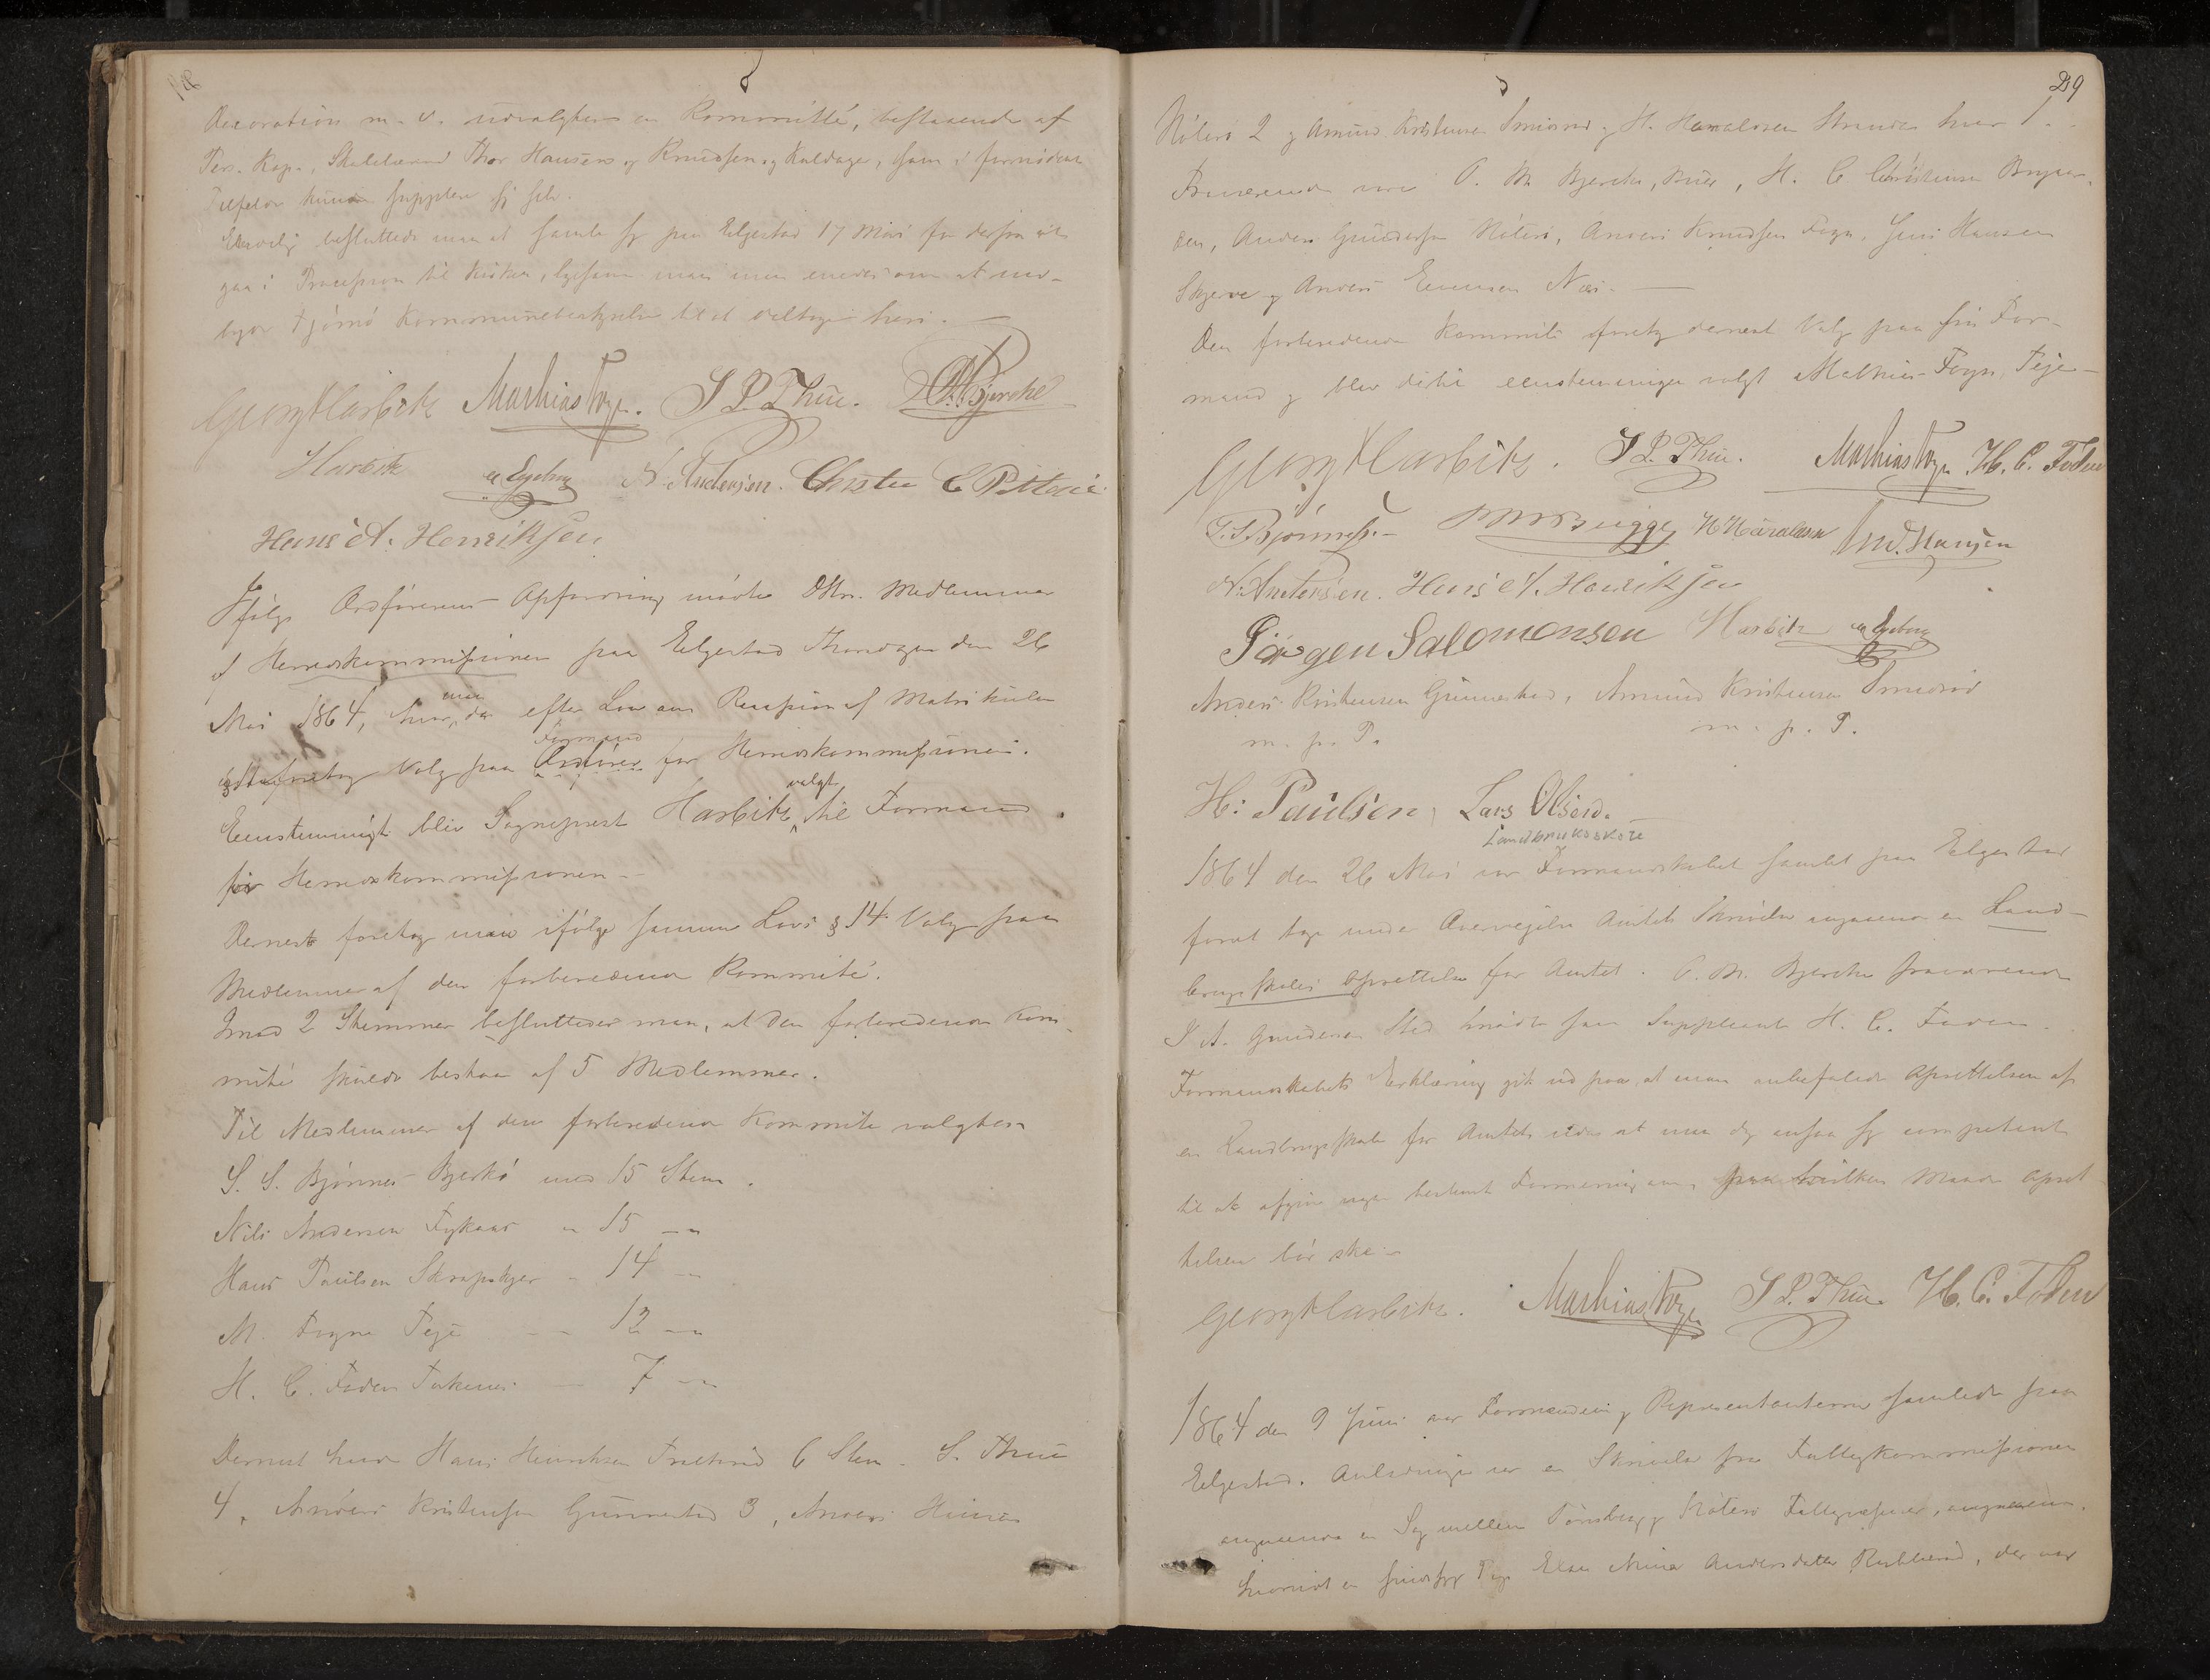 Decoration m. v. udvalgtes en Kommitté, bestaaende af
Skolelærerne Thor Hansen og Knudsen og Kaldager, som i fornødent
Tilfælde kunde supplere sig selv.
Endvidere besluttede man at samle sig paa Elgestad 17 Mai for derfra at
gaa i Procession til Kirken, ligesom man enedes om at ind-
byde Tjømø Kommunebestyrelse til at deltage heri.
Georg Harbitz Mathias Fogn. S P. Thue. O. M. Bjercke
Harbitz Egeberg N. Andersen. Christen C
Hans A. Henriksen
Ifølge Ordførerens Opfordring mødte Medlemmer
af Herredskommissionen paa Elgestad Thorsdagen den 26
Mai 1864, hvor man da efter Lov om Revision af Matrikulen
foretog Valg paa Ordfører Formand for Herredskommissionen.
Eenstemmigt blev Sogneprest Harbitz valgt til Formand
for Herredskommissionen
Dernest foretog man ifølge samme Lovs § 14 Valg paa
Medlemmer af den forberedende Kommité.
Imod 2 Stemmer besluttedes man, at den forberedende Kom-
mité skulde bestaa af 5 Medlemmer.
Til Medlemmer af den forberedende Kommite valgtes
S. S. Bjønnes Bjerkø med 15 Stem.
Nils Andersen 15 —"
Hans Paulsen Skrapskjær - 14 —"
M. Fogn Teje - 12 —"
H. C. Foden — 7 —"
Dernest havde Hans Henriksen 6 Stem. S. Thue
4, Anders Kristensen Gunnestad 3, Anders
29
Nøterø 2 og Amund Kristensen Smidsrød og H. Haraldsen Stranda hver 1.
Fraværende vare O. M. Bjercke, H. C. Christensen Bryse-
den, Anders Gundersen Nøterø, Anders Knudsen Fogn, Jens Hansen
Skjerve og Anders Evensen Næs.
Den forberedende Kommite foretog dernest Valg paa sin For-
mand og blev dertil eenstemmigen valgt Mathias Fogn, Teje
Georg Harbitz. S P. Thue. Mathias Fogn H. C. Foden
S. S. Bjønnes. Brügge H Haraldsen And. Hansen
N. Andersen. Hans A. Henriksen
Jørgen Salomonsen Harbitz Egeberg
Anders Kristensen Gunnestad, Amund Kristensen Smidsrød
m. p. P. m. p. P.
H: Paulsen, Lars Olsen.
Landbruksskole
1864 den 26 Mai var Formandskabet samlet paa Elgestad
forat tage under Overveielse Amtets Skrivelse angaaende en Land-
brugsskoles Oprettelse for Amtet. O. M. Bjercke fraværende
I A. Gundersens Sted mødte som Suppleant H. C. Foden.
Formandskabets Erklæring gik ud paa, at man anbefalede Oprettelsen af
en Landbrugsskole for Amtet uden at man dog ansaa sig competent
til at afgive nogen bestemt Formening om, paa hvilken Maade Opret-
telsen bør ske.
Georg Harbitz. Mathias Fogn S P. Thue H. C. Foden
1864 den 9 Juni var Formænden og Repræsentanterne samlede paa
Elgestad. Anledningen var en Skrivelse fra Fattigkommissionen
angaaende en Sag mellem Tønsberg og Nøterø Fattigvæsener, angaaende
hvorvidt en sindssyg Pige Andersdatter, der var